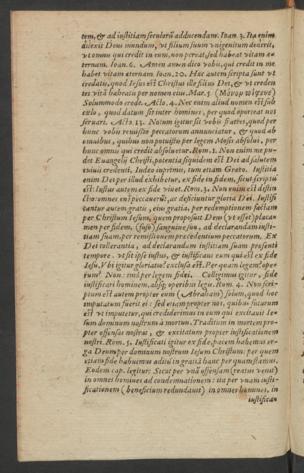 tem, & ad iustitiam seculorũ adducendam. Ioan. 3. Ita enim
dilexit Deus mundum, vt filium suum vnigenitum dederit,
vt omnis qui credit in eum, non pereat, sed habeat vitam æ-
ternam. Ioan. 6. Amen amen dico vobis, qui credit in me
habet vitam æternam. Ioan. 20. Hæc autem scripta sunt vt
credatis, quod Iesus est Christus ille filius Dei, & vt creden
tes vitã habeatis per nomen eius. Mar. 5.
Solummodo crede. Acto. 4. Nec enim aliud nomen est sub
cælo, quod datum sit inter homines, per quod oporteat nos
seruari. Acto. 13. Notum igitur sit vobis fratres, quod per
hunc vobis remissio peccatorum annunciatur, & quod ab
omnibus, quibus non potuistis per legem Mosis absolui, per
hunc omnis qui credit absoluetur. Rom. 1. Non enim me pu-
det Euangelij Christi, potentia siquidem est Dei ad salutem
cuiuis credenti. Iudæo inprimis, tum etiam Græco. Iustitia
enim Dei per illud exhibetur, ex fide in fidem, sicut scriptũ
est: Iustus autem ex fide viuet. Rom. 3. Non enim est distin
ctio: omnes em̃ peccauerũt, ac deficiuntur gloria Dei. Iustifi
cantur autem gratis, eius gratia, per redemptionem factam
per Christum Iesum, quem proposuit Deus (vt esset) placa-
men per fidem, (fuso) sanguine suo, ad declarandam iusti-
tiam suam, per remissionem præcedentium peccatorum. Ex
Dei tollerantia, ad declarandam iustitiam suam præsenti
tempore: vt sit ipse iustus, & iustificans eum qui est ex fide
Iesu. Vbi igitur gloriatio? exclusa est. Per quam legem? ope-
rum? Non: imò per legem fidei. Colligimus igitur, fide
iustificari hominem, absq; operibus legis. Rom. 4. Non scri-
ptum est autem propter eum (Abraham) solum, quod hoc
imputatum fuerit ei: sed etiam propter nos, quibus futurum
est vt imputetur, qui crediderimus in eum qui excitauit Ie-
sum dominum nostrum à mortuis. Traditum in mortem pro-
pter offensas nostras, & excitatum propter iustificationem
nostri. Rom. 5. Iustificati igitur ex fide, pacem habemus er-
ga Deum per dominum nostrum Iesum Christum: per quem
etiam fide habuimus aditũ in gratiã hanc per quam stamus.
Eodem cap. legitur: Sicut per vnã offensam (reatus venit)
in omnes homines ad condemnationem: ita per vnam iusti-
ficationem (beneficium redundauit) in omnes homines, in
iustifican